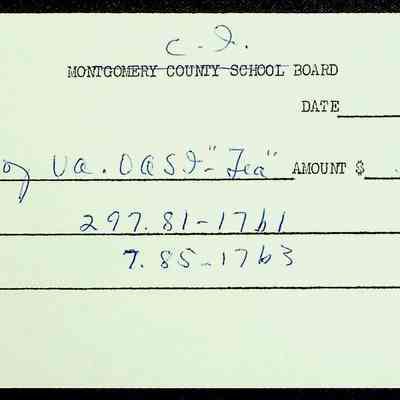 C. I.
MONTGOMERY COUNTY SCHOOL BOARD
DATE
Va. OASI-"Fea" AMOUNT $
297.81-1761
7.85-1763